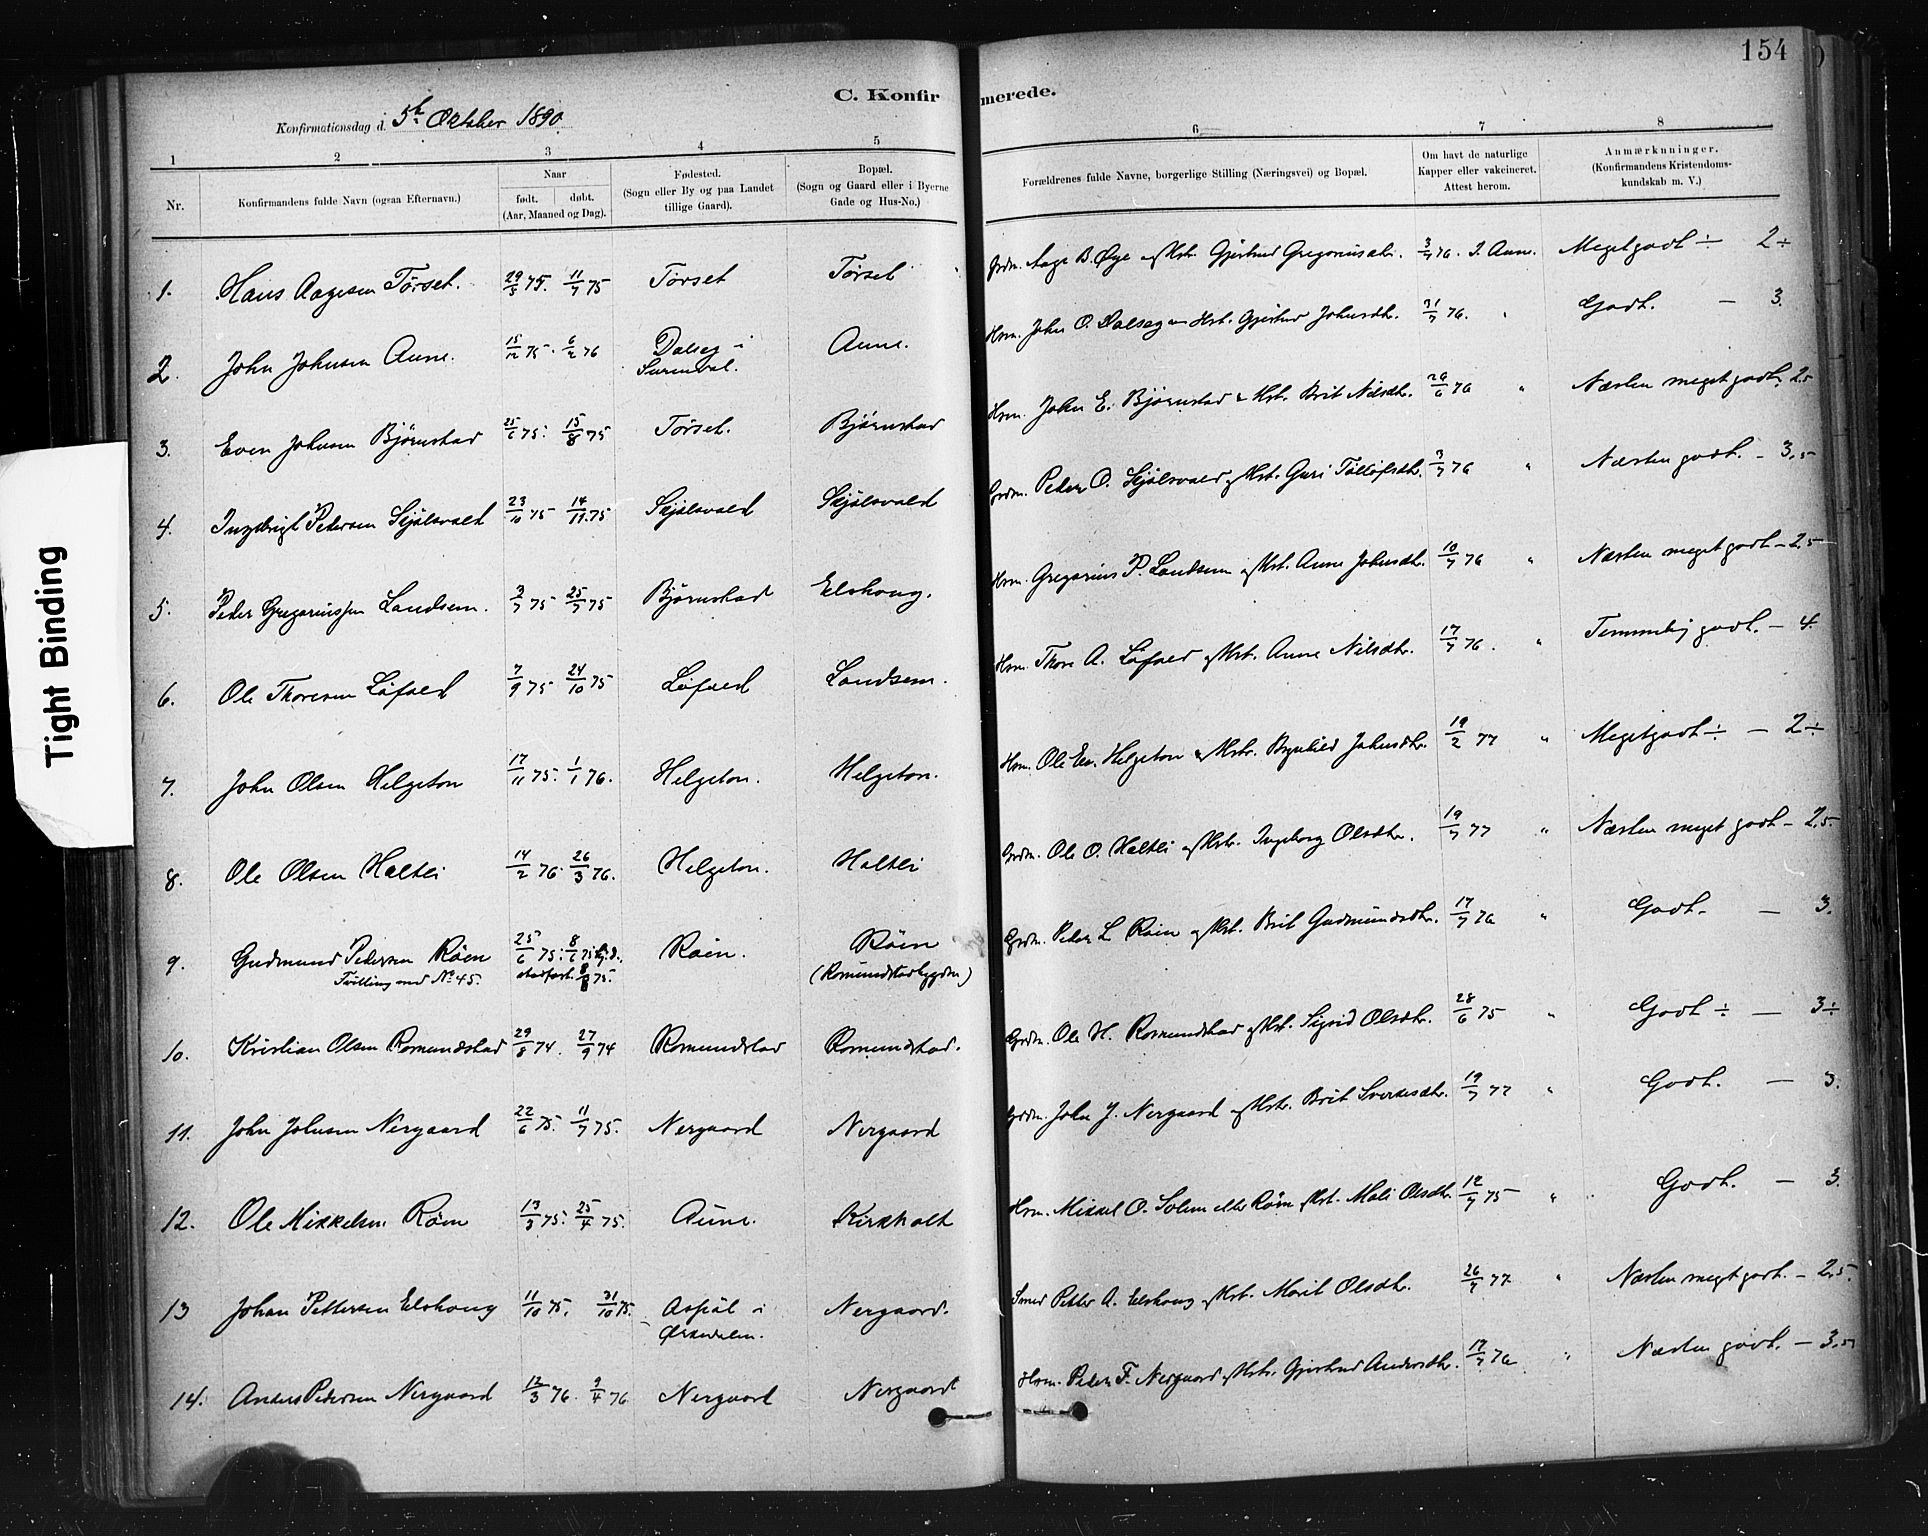 154
C. Konfirmerede.
Konfirmationsdag d. 5te Oktober 1890.
1 2 3 4 5 6 7 8
Nr.
Konfirmandens fulde Navn (ogsaa Efternavn.)
Naar
født. døbt.
(Aar, Maaned og Dag).
Fødested.
(Sogn eller By og paa Landet
tillige Gaard).
Bopæl.
(Sogn og Gaard eller i Byerne
Gade og Hus-No.)
Forældrenes fulde Navne, borgerlige Stilling (Næringsvei) og Bopæl.
Om havt de naturlige
Kapper eller vakcineret.
Attest herom.
Anmærkninger.
(Konfirmandens Kristendoms-
kundskab m. V.)
1. Hans Aagesen Tørset. 29/5 75. 11/7 75 Tørset Tørset Grdm. Aage B. Øye og Kst. Gjertrud Gregoriusdtr. 3/7 76. I. Aune. Meget godt ÷ 2÷
2. John Johnsen Aune. 15/12 75. 6/2 76 Dalseg i Surendal. Aune. Hsm. John O. Dalseg og Kst. Gjertrud Johnsdtr. 31/7 76. " Godt. — 3.
3. Even Johnsen Bjørnstad 25/6 75. 15/8 75 Tørset. Bjørnstad Hsm. John E. Bjørnstad & Kst. Brit Nilsdtr. 26/6 76 " Næsten meget godt. 2,5
4. Ingebrigt Pedersen Skjølsvold 23/10 75 14/11 75 Skjølsvold Skjølsvold Grdm. Peder O. Skjølsvold og Kst. Guri Tøllefsdtr. 3/7 76 " Næsten godt. — 3,5
5. Peder Gregoriussen Landsem. 3/7 75 25/7 75 Bjørnstad Elshoug. Hsm. Gregorius P. Landsem og Kst. Anne Johnsdtr. 10/7 76 " Næsten meget godt — 2,5
6. Ole Thoresen Løfald 7/9 75 24/10 75 Løfald Landsem. Hsm. Thore A. Løfald og Kst. Anne Nilsdtr. 17/7 76. " Temmelig godt. — 4.
7. John Olsen Helgeton 17/11 75. 1/1 76. Helgeton. Helgeton. Hsm. Ole Ev. Helgeton & Kst. Brynhild Johnsdtr. 19/2 77 " Meget godt ÷ — 2÷
8. Ole Olsen Holtli 14/2 76. 26/3 76. Helgeton. Holtli Grdm. Ole O. Holtli og Kst. Ingeborg Olsdtr. 19/7 77 " Næsten meget godt — 2,5
9. Gudmund Pedersen Røen 25/6 75. 8/7 75 Røen. Røen Grdm. Peder L. Røen og Kst. Brit Gudmundsdtr. 17/7 76 " Godt. — 3.
Tvilling med No 45. stadfæst. 8/8 75. (Romundstadbygden)
10. Kristian Olsen Romundstad 29/8 74. 27/9 74 Romundstad Romundstad. Grdm. Ole H. Romundstad og Kst. Sigrid Olsdtr. 28/6 75 " Godt ÷ — 3÷
11. John Johnsen Nergaard 22/6 75. 11/7 75. Nergaard Nergaard Grdm. John J. Nergaard og Kst. Brit Sverkesdtr. 19/7 77 " Godt. — 3.
12. Ole Mikkelsen Røen 13/3 75. 25/4 75. Aune. Kirkholt Hsm. Mikkel O. Solem eller Røen og Kst. Mali Olsdtr. 12/7 75 " Godt. — 3.
13 Johan Pettersen Elshoug 11/10 75. 31/10 75. Aspøl i Nergaard. Smed Petter A. Elshoug og Kst. Marit Olsdtr. 26/7 77 " Næsten meget godt. — 2,5.
14. Anders Pedersen Nergaard 12/3 76. 9/4 76 Nergaard Nergaard Hsm. Peder F. Nergaard og Kst. Gjertrud Andersdtr. 17/7 76 " Næsten godt. — 3,5
Tight Binding